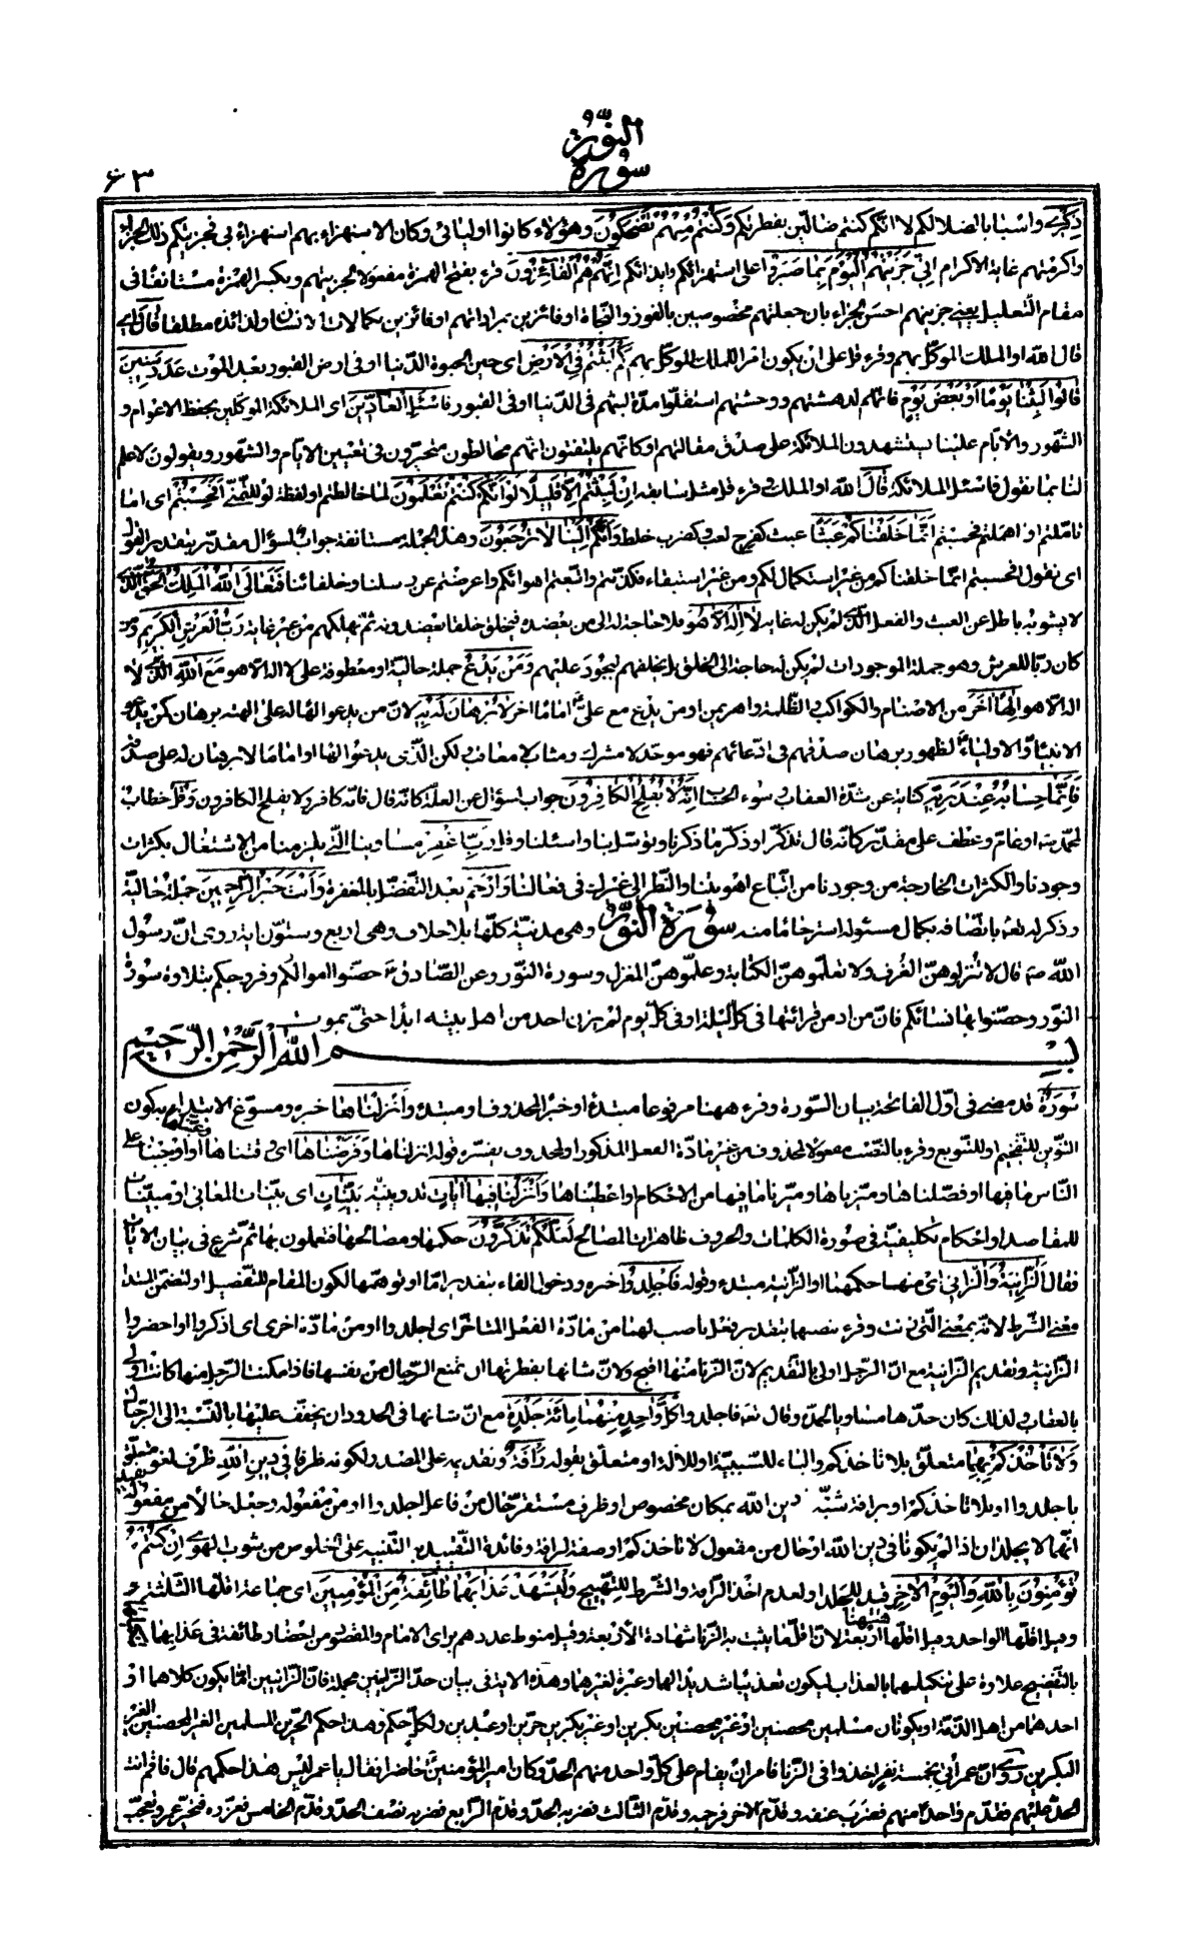 النّور
سورة
۶۳
ذِكْرِي واسبابا لضلالكم لا انّكم كنتم ضالّين بفطرتكم وَكُنْتُمْ مِنْهُمْ تَضْحَكُونَ وهؤلاء كانوا اوليائى وكان الاستهزاء بهم استهزاء بى فجزيتكم ذلك الجزاء
واكرمتهم غاية الاكرام اِنّى جَزَيْتُهُمُ الْيَوْمَ بِما صَبَرُوا على استهزائكم وايذائكم اِنَّهُمْ هُمُ الْفائِزُونَ قرء بفتح الهمزة مفعولا لجزيتهم وبكسر الهمزة مستانفا فى
مقام التّعليل يعنى جزيتهم احسن الجزاء بان جعلتهم مخصوصين بالفوز والنّجاة او فائزين بمراداتهم او فائزين بكمالات الانسان ولذائذه مطلقا قالَ اى
قال اللّه او الملك الموكّل بهم وقرء قل على ان يكون امرا للملك الموكّل بهم كَمْ لَبِثْتُمْ فِى الْاَرْضِ اى حين الحيوة الدّنيا او فى ارض القبور بعد الموت عَدَدَ سِنِينَ
قالُوا لَبِثْنا يَوْمًا اَوْ بَعْضَ يَوْمٍ فانّهم لدهشتهم ووحشتهم استقلّوا مدّة لبثهم فى الدّنيا او فى القبور فَاسْئَلِ الْعادِّينَ اى الملائكة الموكّلين بحفظ الاعوام و
الشّهور والايّام علينا يستشهدون الملائكة على صدق مقالتهم او كانّهم يلتفتون انّهم مخالطون متحيّرون فى تعيين الايّام والشّهور ويقولون لا علم
لنا بما نقول فاسئل الملائكة قالَ اللّه او الملك وقرء قل مثل سابقه اِنْ لَبِثْتُمْ اِلَّا قَلِيلًا لَوْ اَنَّكُمْ كُنْتُمْ تَعْلَمُونَ لما خالطتم او لفظة لو للتّمنّى اَفَحَسِبْتُمْ اى اما
تامّلتم او اهملتم فحسبتم اَنَّما خَلَقْناكُمْ عَبَثًا عبث كفرح لعب وكضرب خلط وَاَنَّكُمْ اِلَيْنا لا تُرْجَعُونَ وهذه الجملة مستانفة جواب لسؤال مقدّر بتقدير القول
اى نقول افحسبتم انّما خلقناكم من غير استكمال لكم ومن غير استبقاء فكذّبتم واتّبعتم اهوائكم واعرضتم عن رسلنا وخلفائنا فَتَعالَى اللّهُ الْمَلِكُ الْحَقُّ الّذى
لا يشوبه باطل عن العبث والفعل الّذى لم يكن له غاية لا اِلهَ اِلَّا هُوَ فلا حاجة له الى من يعضده فيخلق خلقا يعضدونه ثمّ يهلكهم من غير غاية رَبُّ الْعَرْشِ الْكَرِيمِ ومن
كان ربّا للعرش وهو جملة الموجودات لم يكن له حاجة الى الخلق بل يخلقهم ليجود عليهم وَمَنْ يَدْعُ جملة حاليّة او معطوفة على لا اله الّا هو مَعَ اللّهِ الّذى لا
اله الّا هو اِلهًا اخَرَ من الاصنام والكواكب والظّلمة واهريمن او من يدع مع علىّ ع اماما اخر لا بُرْهانَ لَهُ بِهِ لانّ من يدعو الها له على الهته برهان كمن يدعو
الانبياء والاولياء ع لظهور برهان صدقهم فى ادّعائهم فهو موحّد لا مشرك ومثاب لا معاقب لكن الّذى يدعو الها او اماما لا برهان له على صدقه
فَاِنَّما حِسابُهُ عِنْدَ رَبِّهِ كناية عن شدّة العقاب وسوء الحساب اِنَّهُ لا يُفْلِحُ الْكافِرُونَ جواب لسؤال عن العلّة كانّه قال فانّه كافر ولا يفلح الكافرون وَقُلْ خطاب
لمحمّد ص او عامّ وعطف على مقدّر كانّه قال تذكّر او ذكّر ما ذكرنا وتوسّل بنا واسئلنا وقل رَبِّ اغْفِرْ مساوينا الّتى يلزمنا من الاشتغال بكثرات
وجودنا والكثرات الخارجة من وجودنا من اتّباع اهويتنا والنّظر الى غيرك فى فعالنا وَارْحَمْ بعد التّفضّل بالمغفرة وَاَنْتَ خَيْرُ الرّاحِمِينَ جملة حاليّة
وذكر له تعالى باتّصافه بكمال مسئوله استرحاما منه سورة النّور وهى مدنيّة كلّها بلا خلاف وهى اربع وستّون اية روى انّ رسول
اللّه ص قال لا تنزلوهنّ الغرف ولا تعلّموهنّ الكتابة وعلّموهنّ المغزل وسورة النّور وعن الصّادق ع حصّنوا اموالكم وفروجكم بتلاوة سورة
النّور وحصّنوا بها نسائكم فانّ من ادمن قرائتها فى كلّ ليلة او فى كلّ يوم لم يزن احد من اهل بيته ابدا حتّى يموت
بسم اللّه الرّحمن الرّحيم
سُورَةٌ قد مضى فى اوّل الفاتحة بيان السّورة وقرء ههنا مرفوعا مبتدء او خبرا لمحذوف او مبتدء واَنْزَلْناها خبره ومسوّغ الابتداء به كون
التّنوين للتّفخيم او للتّنويع وقرء بالنّصب معمولا لمحذوف من غير مادّة الفعل المذكور او لمحذوف يفسّره قوله انزلناها وَفَرَضْناها اى قنناها او اوجبنا على
النّاس ما فيها او فصّلناها وميّزناها وميّزنا ما فيها من الاحكام او اعطيناها وَاَنْزَلْنا فِيها اياتٍ تدوينيّة بَيِّناتٍ اى بيّنات المعانى او مبيّنات
للمقاصد او احكام تكليفيّة فى صورة الكلمات والحروف ظاهرات المصالح لَعَلَّكُمْ تَذَكَّرُونَ حكمها ومصالحها فتعملون بها ثمّ شرع فى بيان الايات
فقال اَلزّانِيَةُ وَالزّانِى اى منهما حكمهما او الزّانية مبتدء وقوله فَاجْلِدُوا خبره ودخول الفاء بتقدير امّا او توهّمها لكون المقام للتّفصيل او لتضمّن المبتدا
معنى الشّرط لانّه بمعنى الّتى زنت وقرء بنصبهما بتقدير فعل ناصب لهما من مادّة الفعل المتاخّر اى اجلدوا او من مادّة اخرى اى اذكروا او احضروا
الزّانية وتقديم الزّانية مع انّ الرّجل اولى بالتّقديم لانّ الزّنا منها اقبح ولانّ شانها بفطرتها ان تمنع الرّجال من نفسها فاذا مكنت الرّجل منها كانت اولى
بالعقاب ولذلك كان حدّها مساويا لحدّه وقال تعالى فاجلدوا كُلَّ واحِدٍ مِنْهُما مِائَةَ جَلْدَةٍ مع انّ شانها فى الحدود ان يخفّف عليها بالنّسبة الى الرّجال
وَلا تَأْخُذْكُمْ بِهِما متعلّق بلا تاخذكم والباء للسّببيّة او للالة او متعلّق بقوله رَأْفَةٌ وتقديمه على المصدر لكونه ظرفا فِى دِينِ اللّهِ ظرف لغو متعلّق
باجلدوا او بلا تاخذكم او برافة شبّه دين اللّه بمكان مخصوص او ظرف مستقرّ حال من فاعل اجلدوا او من مفعوله وجعل حالا من مفعوله
انّهما لا يجلدان اذا لم يكونا فى دين اللّه او حال من مفعول لا تاخذكم او صفة لرافة وفائدة التّقييد به التّنبيه على الخلوص من شوب الهوى اِنْ كُنْتُمْ
تُؤْمِنُونَ بِاللّهِ وَالْيَوْمِ الْاخِرِ قيد للجلد او لعدم اخذ الرّافة والشّرط للتّهييج وَلْيَشْهَدْ عَذابَهُما طائِفَةٌ مِنَ الْمُؤْمِنِينَ اى جماعة اقلّها الثّلاثة
وقيل اقلّها الواحد وقيل اقلّها اربعة لانّ اقلّ ما يثبت به الزّنا شهادة الاربعة وقيل منوط عددهم براى الامام والمقصود من احضار طائفة فى عذابهما
بالتّفضيح علاوة على تنكيلهما بالعذاب ليكون تعذيبا شديدا لهما وعبرة لغيرهما وهذه الاية فى بيان حدّ الزّانيين مجملة فانّ الزّانيين امّا يكون كلاهما او
احدهما من اهل الذّمّة او يكونان مسلمين محصنين او غير محصنين بكرين او غير بكرين حرّين او عبدين ولكلّ حكم وهذا حكم الحرّين المسلمين الغير المحصنين الغير
البكرين روى انّ عمر اتى بخمسة نفر اخذوا فى الزّنا فامر ان يقام على كلّ واحد منهم الحدّ وكان امير المؤمنين ع حاضرا فقال يا عمر ليس هذا حكمهم قال فاقم انت
الحدّ عليهم فقدّم واحدا منهم فضرب عنقه وقدّم الاخر فرجمه وقدّم الثّالث فضربه الحدّ وقدّم الرّابع فضربه نصف الحدّ وقدّم الخامس فعزّره فتحيّر عمر وتعجّب